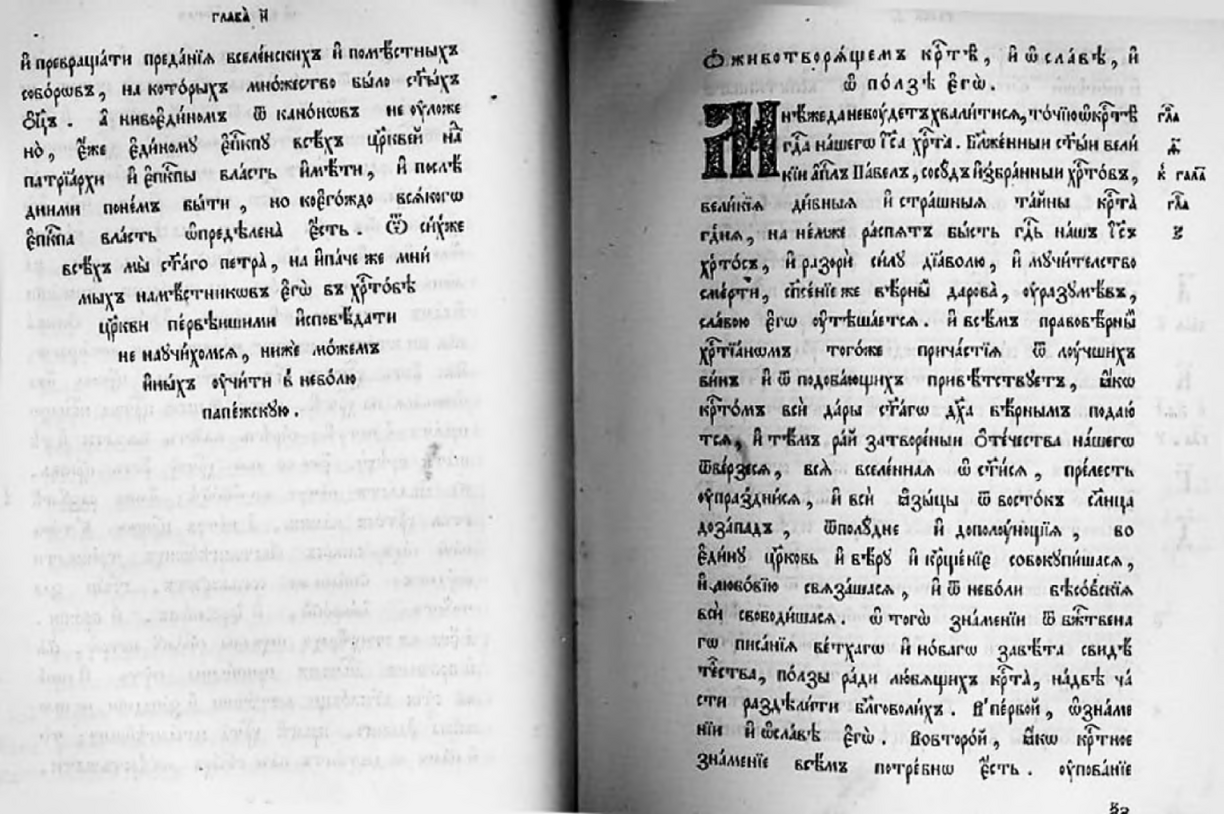 глава̀ и҃
и҆ превраща́ти преда́нїѧ вселе́нскихъ и҆ помѣ́стныхъ
собо́рѡвъ, на кото́рыхъ мно́жество бы́ло ст҃ы́хъ
ѻ҆ц҃ъ. а҆ нивоеди́номъ ѿ кано́нѡвъ не ѹ҆ложе
но̀, є҆́же є҆ди́ному є҆пⷭ҇кпу всѣ́хъ цр҃кве́й на̀
патрїа́рхи и҆ є҆пⷭ҇кпы вла́сть и҆мѣ́ти, и҆ послѣ́
дними поне́мъ бы́ти, но кое́гождо всѧ́когѡ
є҆пⷭ҇кпа вла́сть ѡ҆предѣ́лена є҆́сть. Ѿ си́хже
всѣ́хъ мы̀ ст҃а́го петра̀, на и҆па́че же мни́
мыхъ намѣ́стникѡвъ є҆гѡ̀ въ хрⷭ҇то́вѣ
цр҃кви пе́рвѣишими и҆сповѣ́дати
не научи́хомсѧ, нижѐ мо́жемъ
и҆ны́хъ ѹ҆чи́ти в нево́лю
папе́жскую.
Ѡ҆ животворѧ́щемъ крⷭ҇тѣ̀, и҆ ѡ҆ сла́вѣ, и҆
ѡ҆ по́лзѣ є҆гѡ̀.
Мнѣ́же да не бу́детъ хвали́тисѧ, то́чїю ѡ҆ крⷭ҇тѣ̀ гла
гдⷭ҇а на́шегѡ і҆с҃а хрⷭ҇та̀. Блж҃е́нныи ст҃ы́и вели
кїи а҆пⷭ҇лъ Па́велъ, сосу́дъ и҆збра́нныи хрⷭ҇то́въ, к гала́
вели́кїѧ ди́вныѧ и҆ стра́шныѧ та́йны крⷭ҇та̀ гла
гдⷭ҇нѧ, на не́мже распѧ́тъ бы́сть гдⷭ҇ь на́шъ і҆с҃ъ
хрⷭ҇то́съ, и҆ разорѝ си́лу дїа́волю, и҆ мучи́телство
сме́рти, сп҃се́нїе же вѣ́рны дарова̀, ѹ҆разумѣ́въ,
сла́вою є҆гѡ ѹ҆тѣша́етсѧ. и҆ всѣ́мъ правовѣ́рны
хрⷭ҇тїа́нѡмъ тогѡ́же прича́стїѧ ѿ лу́чшихъ
ви́нъ и҆ ѿ подоба́ющихъ привѣ́тствуетъ, ꙗ҆́кѡ
крⷭ҇то́мъ всѝ да́ры ст҃а́гѡ дх҃а вѣ́рнымъ подаю́
тсѧ, и҆ тѣ́мъ ра́й затворе́ныи ѻ҆те́чества на́шегѡ
ѿве́рзесѧ, всѧ̀ вселе́нная ѡ҆ ст҃и́сѧ, пре́лесть
ѹ҆праздни́сѧ, и҆ всѝ ꙗ҆зы́цы ѿ восто́къ сл҃нца
доза́падъ, ѿполу́дне и҆ дополу́нощїѧ, во
є҆ди́ну цр҃ковь и҆ вѣ́ру и҆ крⷭ҇ще́нїе совокупи́шасѧ,
и҆ любо́вїю свѧза́шасѧ, и҆ ѿ нево́ли бѣсо́вскїѧ
всѝ свободи́шасѧ. ѡ҆ тогѡ̀ зна́менїи ѿ бжⷭ҇твена
гѡ писа́нїѧ ве́тхагѡ и҆ но́вагѡ завѣ́та свидѣ́
тⷭ҇ества, по́лзы ра́ди лю́бѧщихъ крⷭ҇та̀, на двѣ̀ ча́
сти раздѣли́ти бл҃говоли́хъ. В пе́рвой, ѡ҆ зна́ме
нїи и҆ ѡ҆ сла́вѣ є҆гѡ̀. Во второ́й, ꙗ҆́кѡ крⷭ҇тное
зна́менїе всѣ́мъ потре́бнѡ є҆́сть. ѹ҆пова́нїе